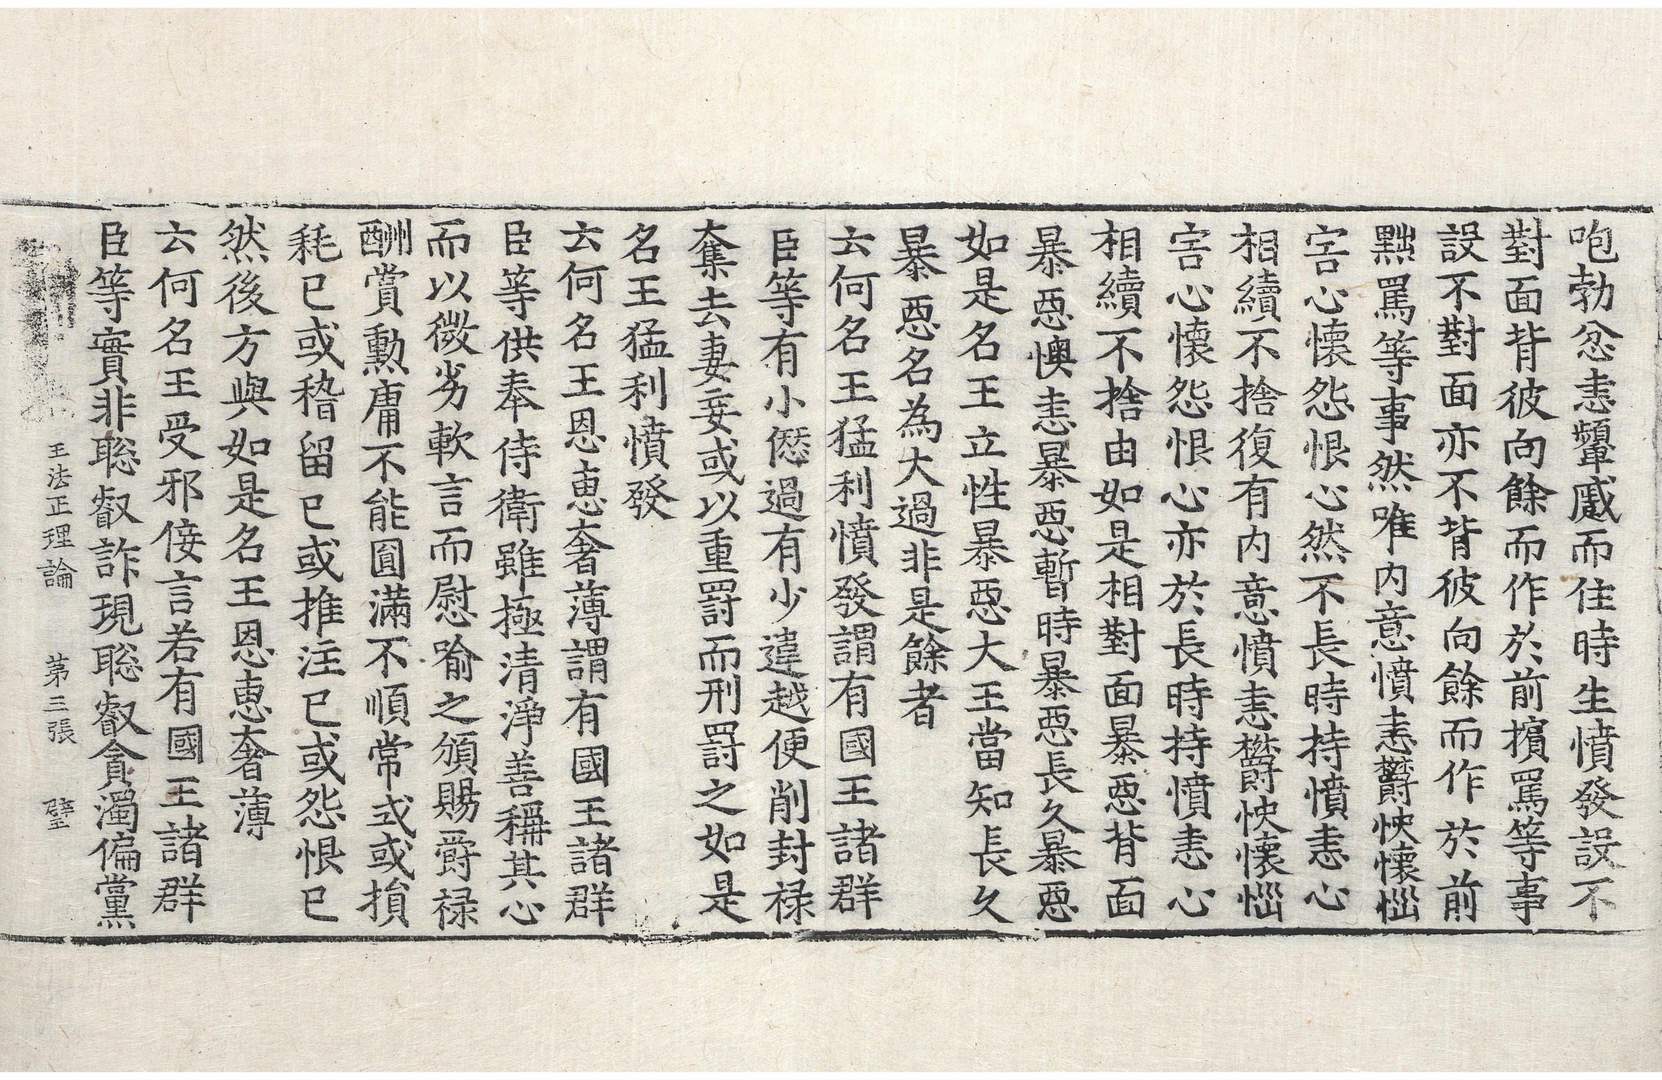 咆勃忿恚顰蹙而住時生憤發設不
對面背彼向餘而作於前擯罵等事
設不對面亦不背彼向餘而作於前
黜罵等事然唯内意憤恚欝怏懷惱
害心懷怨恨心然不長時持憤恚心
相續不捨復有内意憤恚欝怏懷惱
害心懷怨恨心亦於長時持憤恚心
相續不捨由如是相對面暴惡背面
暴惡懊恚暴惡暫時暴惡長久暴惡
如是名王立性暴惡大王當知長久
暴惡名為大過非是餘者
云何名王猛利憤發謂有國王諸群
臣等有小僽過有少違越便削封禄
奪去妻妾或以重罰而刑罰之如是
名王猛利憤發
云何名王恩惠奢薄謂有國王諸群
臣等供奉侍衛雖極清淨善稱其心
而以微劣軟言而慰喻之頒賜爵禄
酬賞勲庸不能圓滿不順常式或損
耗已或稽留已或推注已或怨恨已
然後方與如是名王恩惠奢薄
云何名王受邪佞言若有國王諸群
臣等實非聡叡詐現聡叡貪濁偏黨
王法正理論 第三張 璧